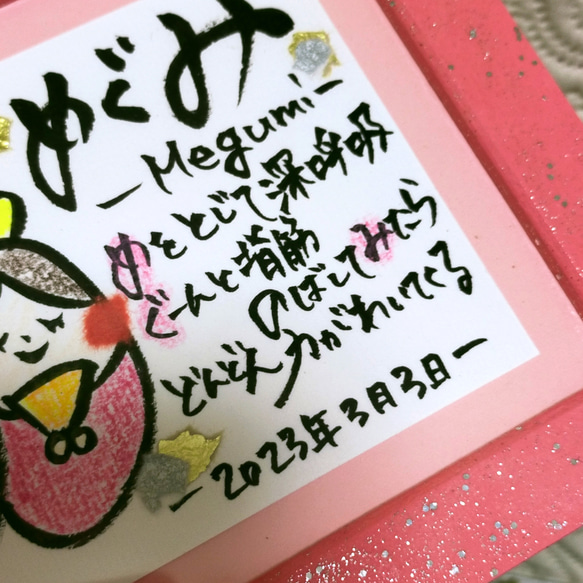 めぐみ
-Megumi-
めをとじて深呼吸
ぐーんと背筋
のばしてみたら
どんどん力がわいてくる
-2023年3月3日-